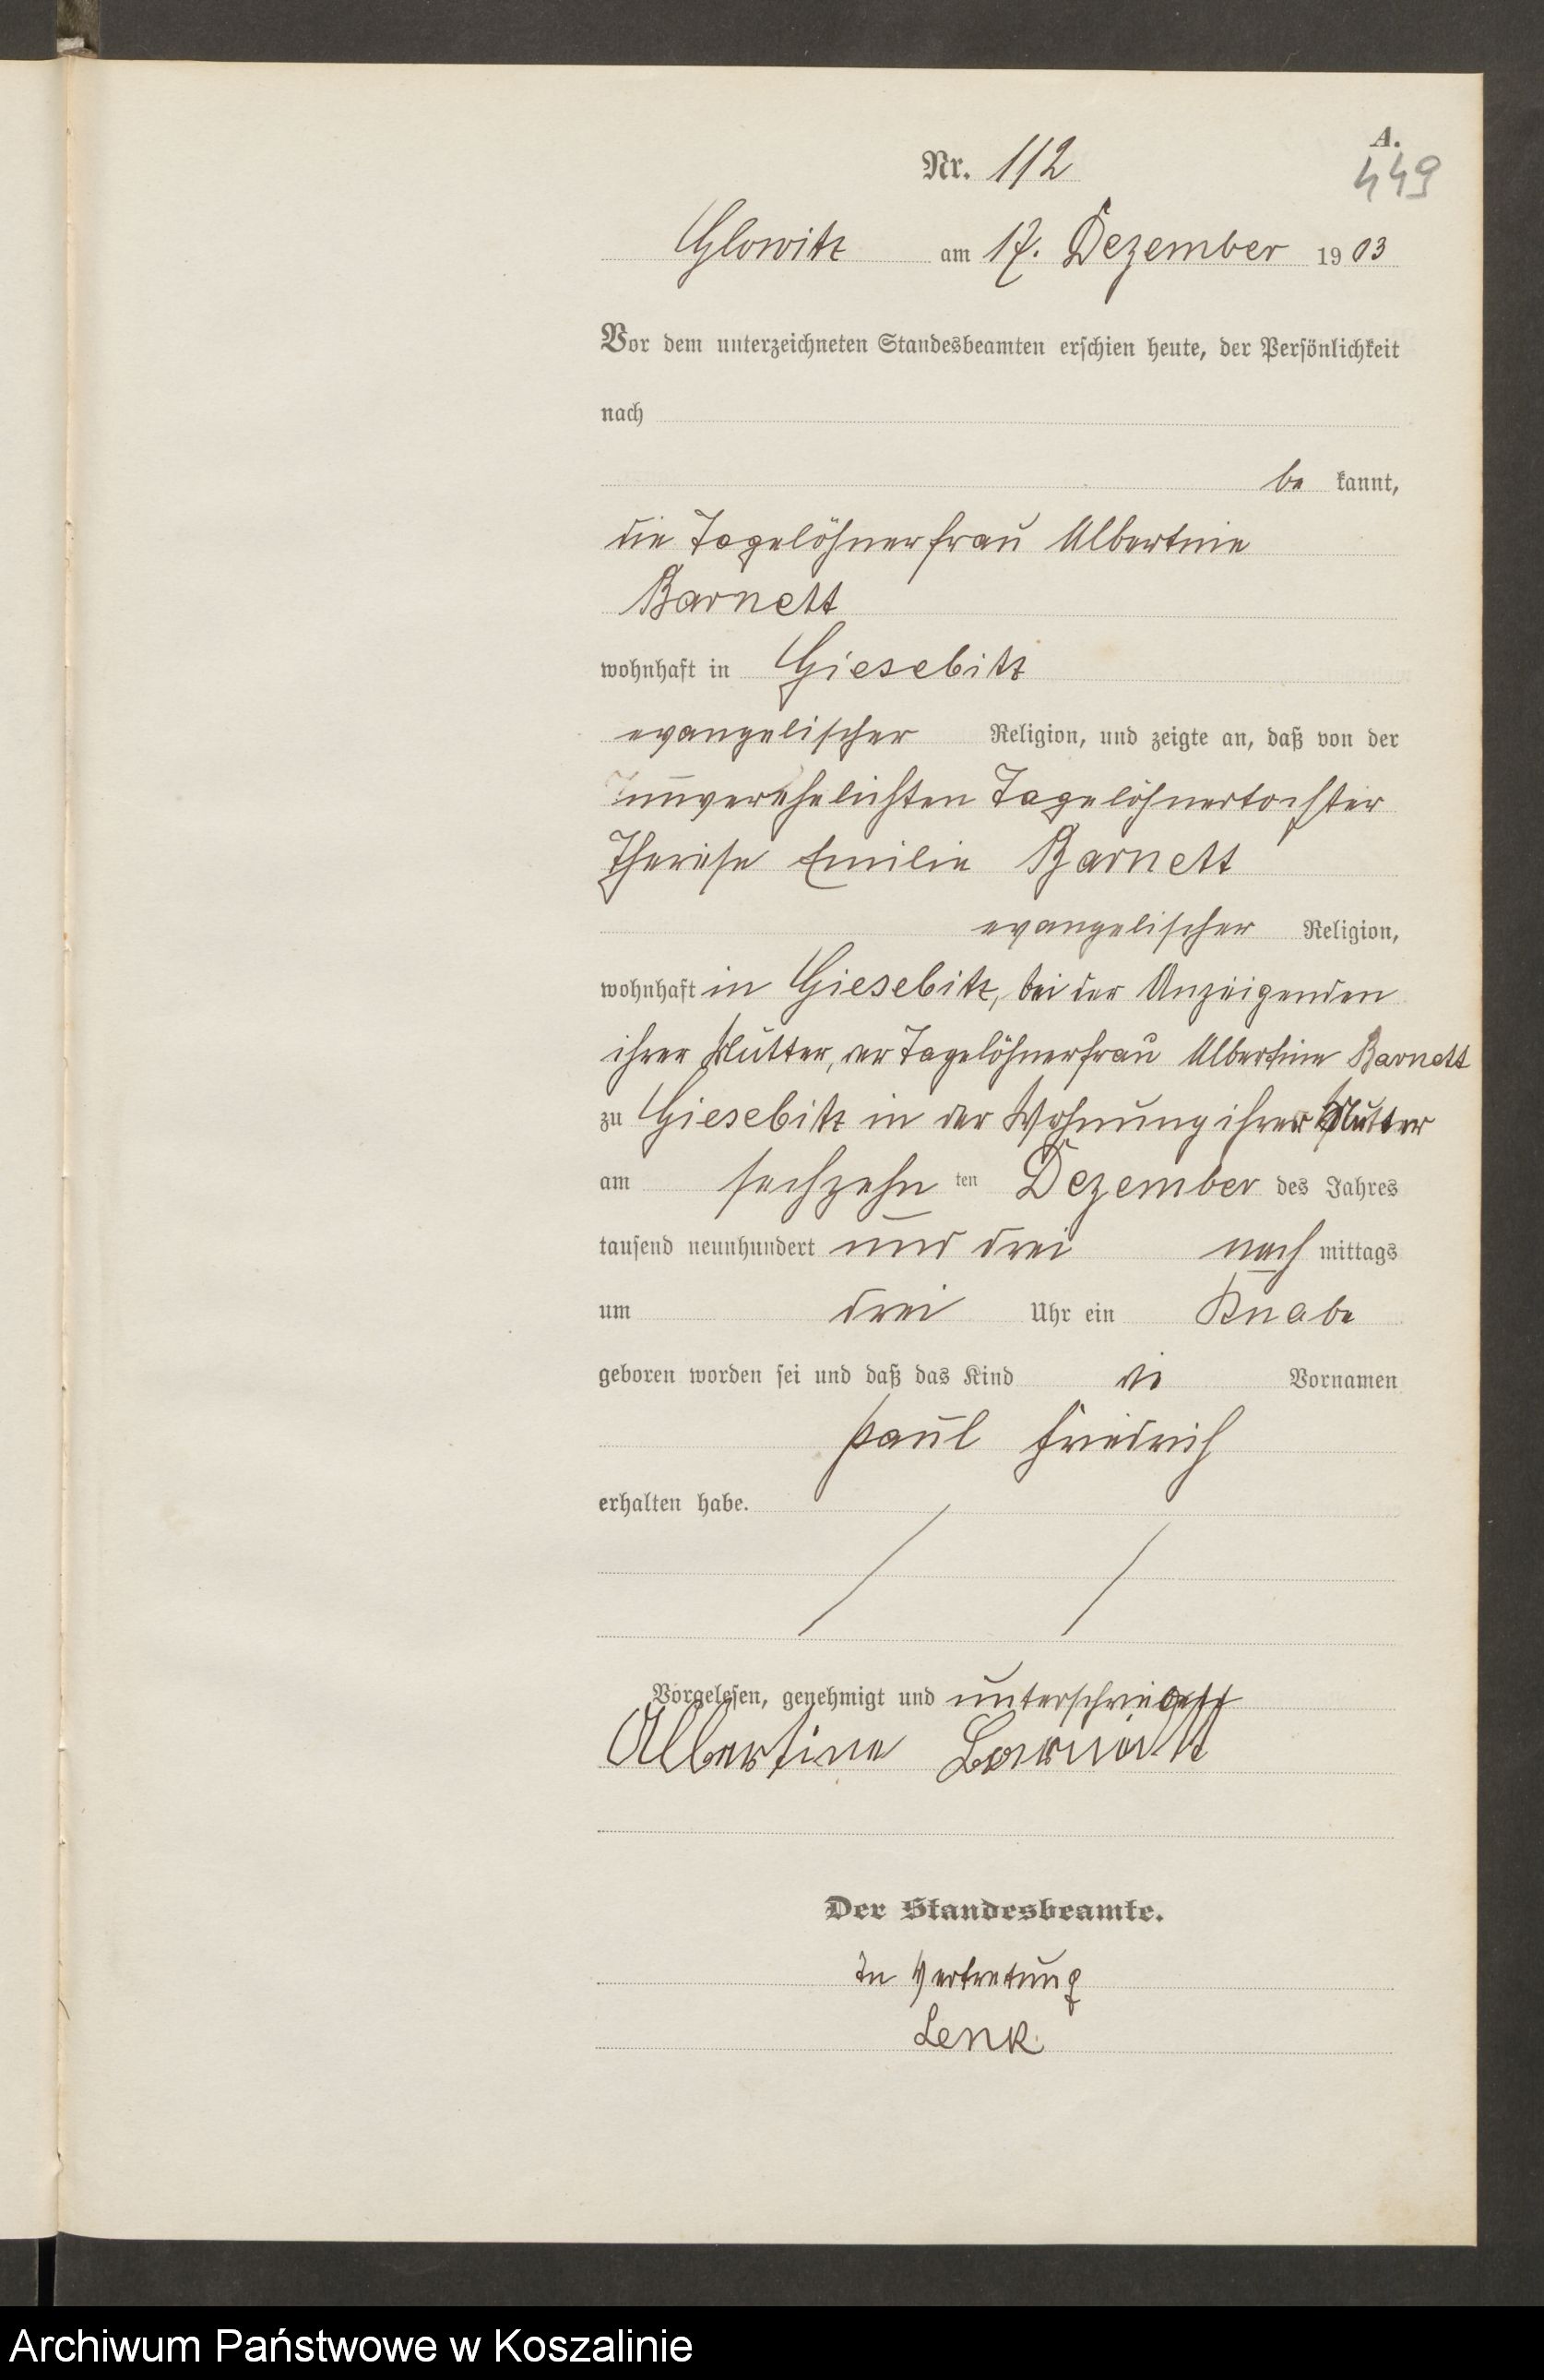 A.
Nr. 112
449
Glowitz am 17. Dezember 1903
Vor dem unterzeichneten Standesbeamten erschien heute, der Persönlichkeit
nach
be kannt,
die Tagelöhnerfrau Albertine
Barnett
wohnhaft in Giesebitz
evangelischer Religion, und zeigte an, daß von der
unverehelichten Tagelöhnertochter
Therese Emilie Barnett
evangelischer Religion,
wohnhaft in Giesebitz, bei der Anzeigenden
ihrer Mutter, der Tagelöhnerfrau Albertine Barnett
zu Giesebitz in der Wohnung ihrer Mutter
am sechzehn ten Dezember des Jahres
tausend neunhundert und drei nach mittags
um drei Uhr ein Knabe
geboren worden sei und daß das Kind die Vornamen
Paul Friedrich
erhalten habe.
Vorgelesen, genehmigt und unterschrieben
Albertine Barnett
Der Standesbeamte.
In Vertretung
Lenk.
Archiwum Państwowe w Koszalinie